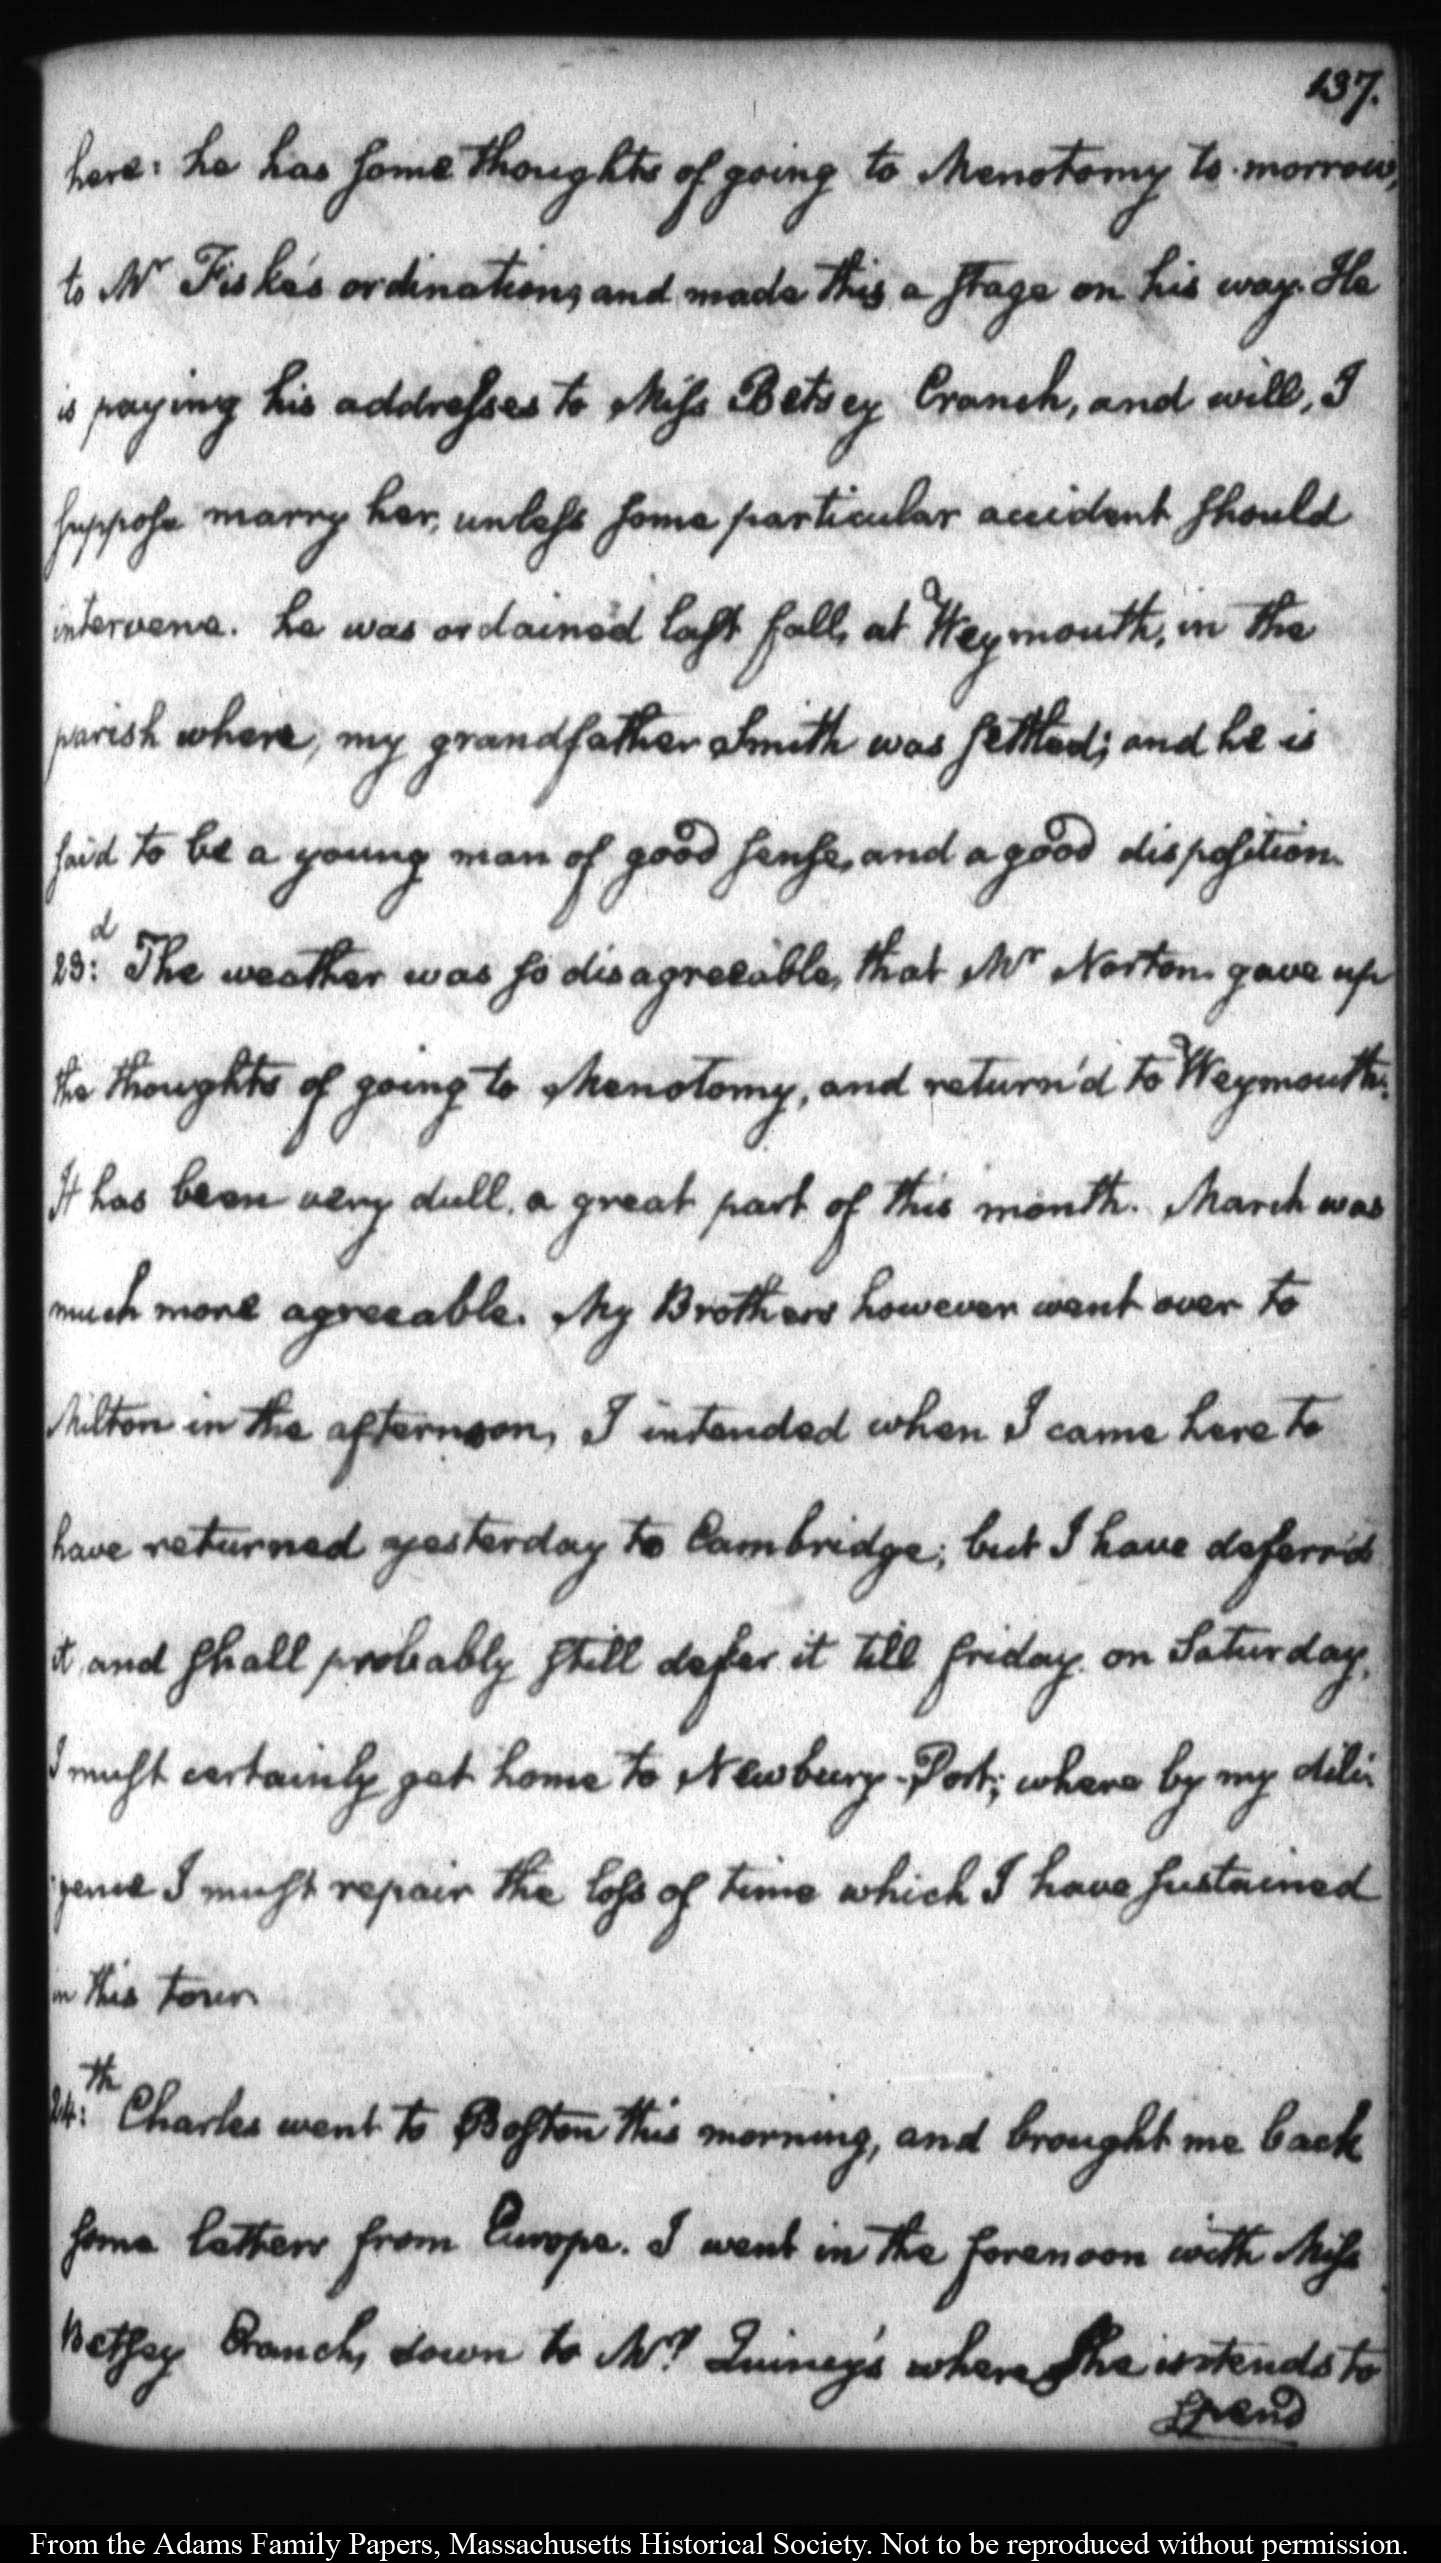 137.
here: he has some thoughts of going to Menotomy to-morrow,
to Mr Fiske's ordination, and made this a stage on his way. He
is paying his addresses to Miss Betsey Cranch, and will, I
suppose marry her, unless some particular accident should
intervene. he was ordained last fall, at Weymouth, in the
parish where, my grandfather Smith was settled; and he is
said to be a young man of good sense, and a good disposition.
23:d The weather was so disagreeable, that Mr Norton gave up
the thoughts of going to Menotomy, and return'd to Weymouth.
It has been very dull, a great part of this month. March was
much more agreeable. My Brothers however went over to
Milton in the afternoon, I intended when I came here to
have returned yesterday to Cambridge; but I have deferr'd
it and shall probably still defer it till friday. on Saturday,
I must certainly get home to Newbury-Port; where by my dili-
gence I must repair the loss of time which I have sustained
in this tour
24:th Charles went to Boston this morning, and brought me back
some letters from Europe. I went in the forenoon with Miss
Betsey Cranch, down to Mrs Quincy's where she intends to
spend
From the Adams Family Papers, Massachusetts Historical Society. Not to be reproduced without permission.